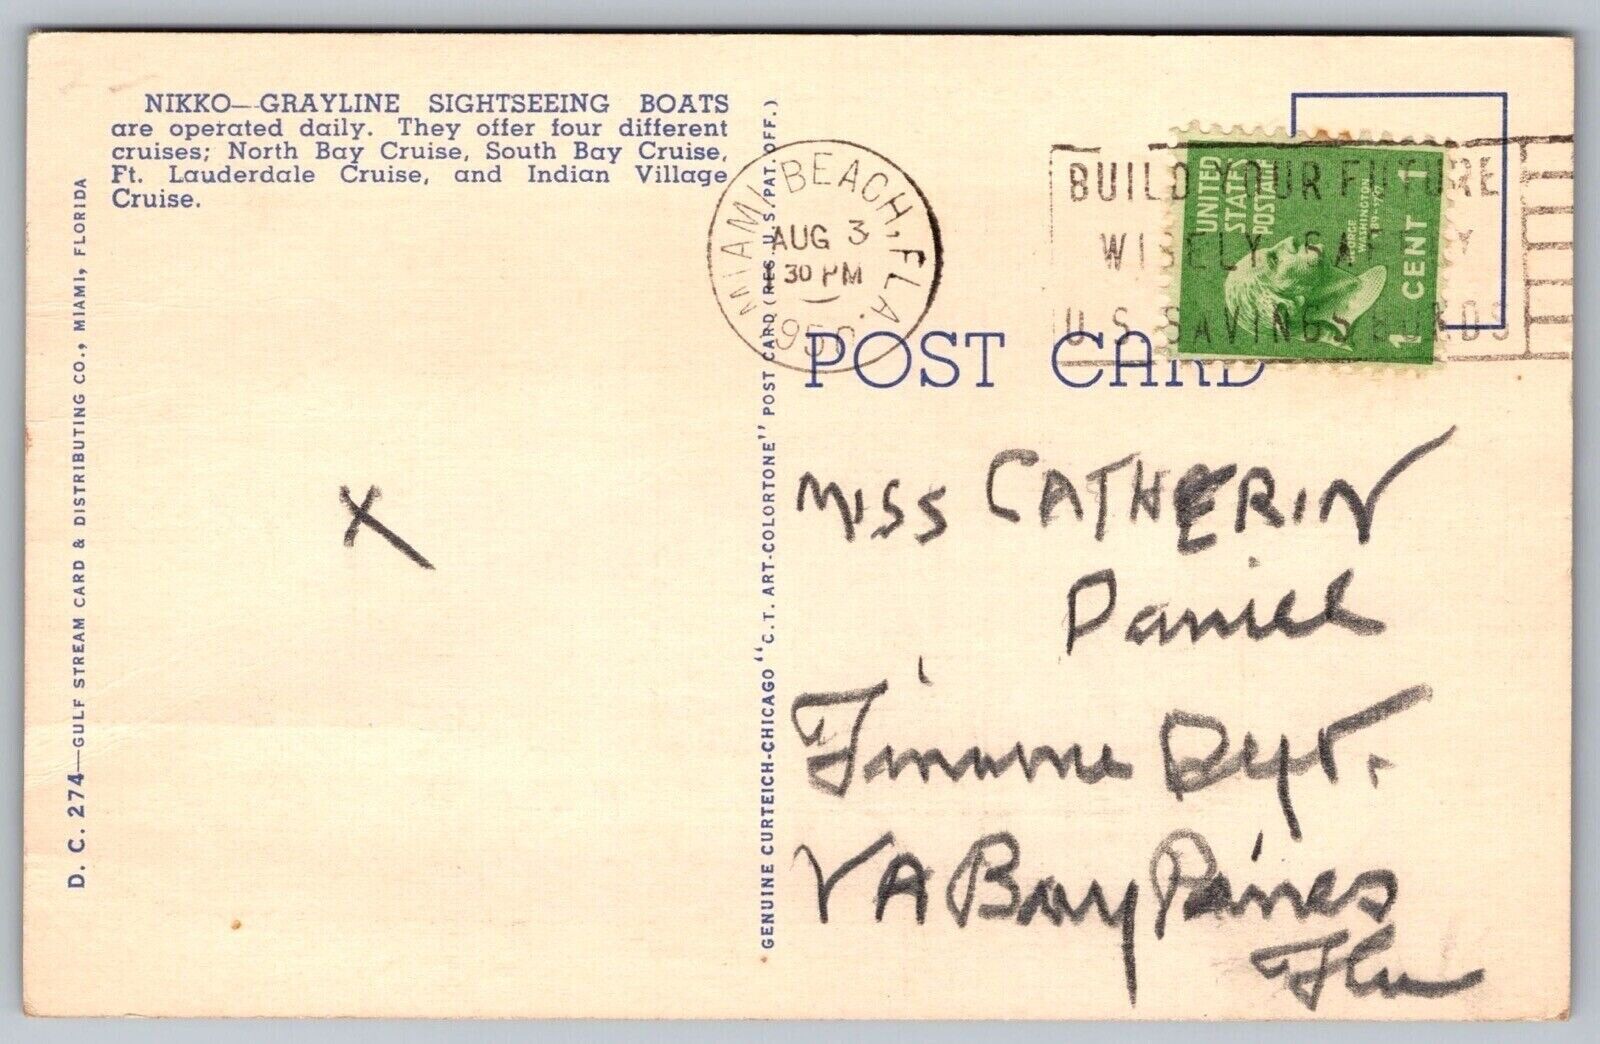 NIKKO—GRAYLINE SIGHTSEEING BOATS
are operated daily. They offer four different
cruises; North Bay Cruise, South Bay Cruise,
Ft. Lauderdale Cruise, and Indian Village
Cruise.
D. C. 274—GULF STREAM CARD & DISTRIBUTING CO., MIAMI, FLORIDA
X
GENUINE CURTEICH-CHICAGO "C.T. ART-COLORTONE" POST CARD (REG. U.S. PAT. OFF.)
MIAMI BEACH, FLA.
AUG 3
30 PM
BUILD YOUR FUTURE
WISELY
U.S. SAVINGS BONDS
UNITED
STATES
POSTAGE
GEORGE
WASHINGTON
1 CENT 1
POST CARD
MISS CATHERIN
Daniel
Finance Dept.
VA Bay Pines
Fla